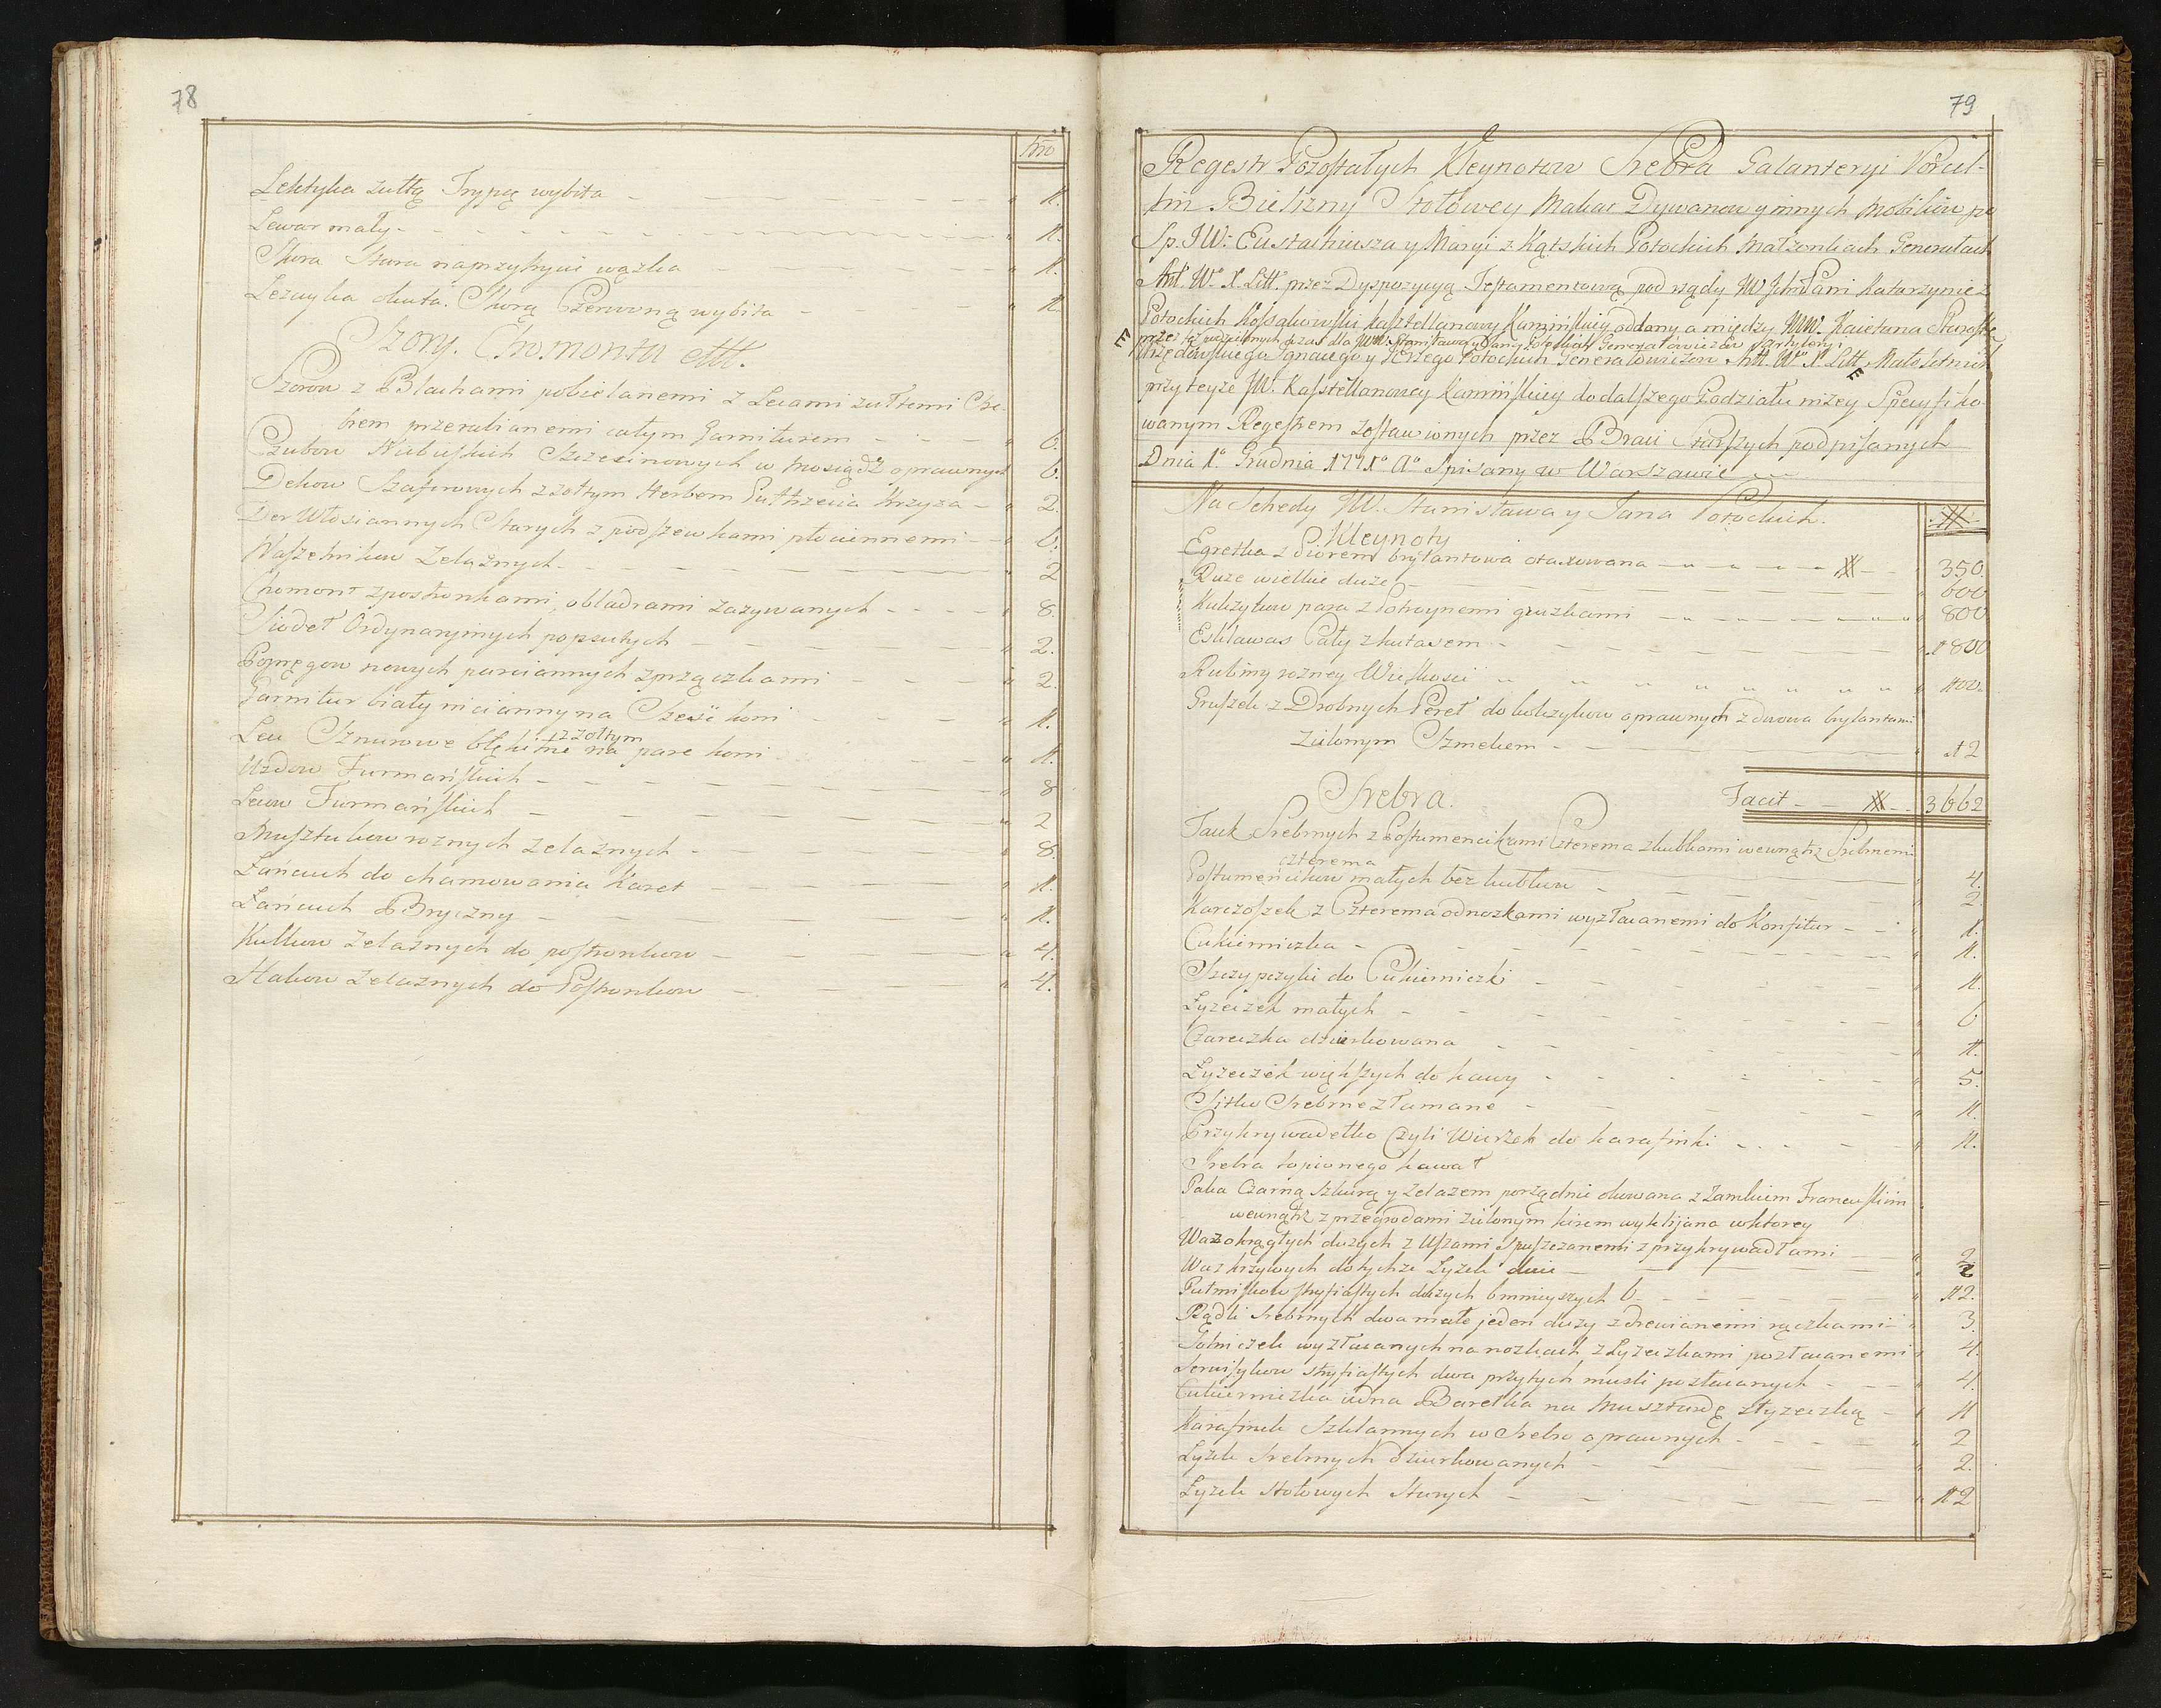 78
Nro
Lektyka zułtą Trypą wybita - - - - - - „ 1.
Lewar mały - - - - - - „ 1.
Skura Stara naprzykrycie wązka - - - - „ 1.
Lezayka okuta. Skorą Czerwoną wybita - - - „ 1.
Szory. Chomonta ettt.
Szorow z Blachami pobielanemi z Lecami zułtemi Sre-
brem przerabianemi całym Garniturem - - - „ 6.
Czubow Szczecinowych w mosiądz oprawnych „ 6.
Dekow Szafirowych z zołtym Herbem Puł trzecia Krzyza - „ 2.
Der Włosiannych Starych z podszewkami płociennemi - - „ 6.
Naszelnikow Zelaznych - - - - - „ 2
Chomont zpostronkami, obladrami zazywanych - - - - „ 8.
Siodeł Ordynaryinych popsutych - - - - - „ 2.
Popręgow nowych parciannych zprzączkami - - - „ 2.
Garnitur biały nicianny na Sześć koni - - - „ 1.
z zołtym
Lece Sznurowe błękitne na pare koni - - - „ 1.
Uzdow Furmańskich - - - - - - „ 8
Lecow Furmańskich - - - - - - „ 2
Musztukow roznych zelaznych - - - - - „ 8.
Łańcuch do chamowania Karet - - - - - „ 1.
Łańcuch Bryczny - - - - - - „ 1.
Kulkow zelaznych do postronkow - - - - „ 4.
Hakow zelaznych do Postronkow - - - - „ 4.
79
Regestr Pozostałych Kleynotow Srebra Galanteryi Porcel-
lin Bielizny Stołowey Makat Dywanow y innych Mobiliow po
Sp. JW: Eustachiusza y Maryi z Kątskich Potockich Małzonkach Generałach
Art. W. X. Litt. przez Dyspozycyą Testamentową pod rządy W Jmć Pani Katarzynie z
Potockich Kossakowski Kasztellanowy Kamińskiey oddany a między JWW. Kaietana Starostę
Ignacego y Jerzego Potockich Generałowiczow Art. W. X. Litt. Małoletnich
przy teyze JW. Kasztellanowey Kamińskiey do dalszego Podziału nizey Specyfiko-
wanym Regestrem zostawionych przez Braci Starszych podpisanych
Dnia 1° Grudnia 1771° A° Spisany w Warszawie
Na Schedy JW. Stanisława y Jana Potockich.
Kleynoty
Egretka z Piorem brylantowa otaxowana - - - - - 350.
Ruze wielkie duze - - - - - 600
Kulczykow para z Potroynemi gruszkami - - - - - 800
Esklawas Cały z kutasem - - - - - „ 1800
Rubiny rozney Wielkosci „ „ „ „ „ „ „ „ 100.
Gruszek z Drobnych Pereł do kolczykow oprawnych z dwoma brylantami
Zielonym Szmelcem - - - - „ 12
Facit - - - 3662
Srebra.
Tacek Srebrnych z Postumencikami Czterema z kubkami wewnątrz Srebrnemi
czterema - - - „ 4.
Postumencikow małych bez kubkow - - - - „ 2
Karczoszek z Czterema odnozkami wyzłacanemi do Konfitur - - „ 1.
Cukierniczka - - - - - - „ 1.
Szczypczyki do Cukierniczki - - - - - „ 1.
Łyzeczek małych - - - - - - „ 6
Czareczka dziurkowana - - - - - „ 1.
Łyzeczek większych do kawy - - - - - „ 5.
Sitko Srebrne złamane - - - - - „ 1.
Przykrywadełko Czyli Wierzek do karafinki - - - - „ 1.
Srebra topionego kawał
Paka Czarną Skurą y zelazem porządnie okowana z Zamkiem Francuskim
wewnątrz z przegrodami zielonym kirem wyklijana wktorey
Waz okrągłych duzych z Uszami Spuszczanemi z przykrywadłami - „ 2
Waz krzywych do tychze Łyzek dwie - - - „ 2
Pułmiskow duzych 6 mnieyszych 6 - - - - „ 12.
Rądli Srebrnych dwa małe jeden duzy z drewianemi rączkami - „ 3.
Solniczek wyzłacanych na nozkach z Łyzeczkami pozłacanemi „ 4.
dwa przytych musli pozłacanych - - - „ 4.
Cukierniczka iedna Baretka na Musztardę złyzeczką - „ 1
Karafinek Szklannych w Srebro oprawnych - - - - „ 2
Łyzek Srebrnych dziurkowanych - - - - „ 2.
Łyzek Stołowych Starych - - - - - „ 12